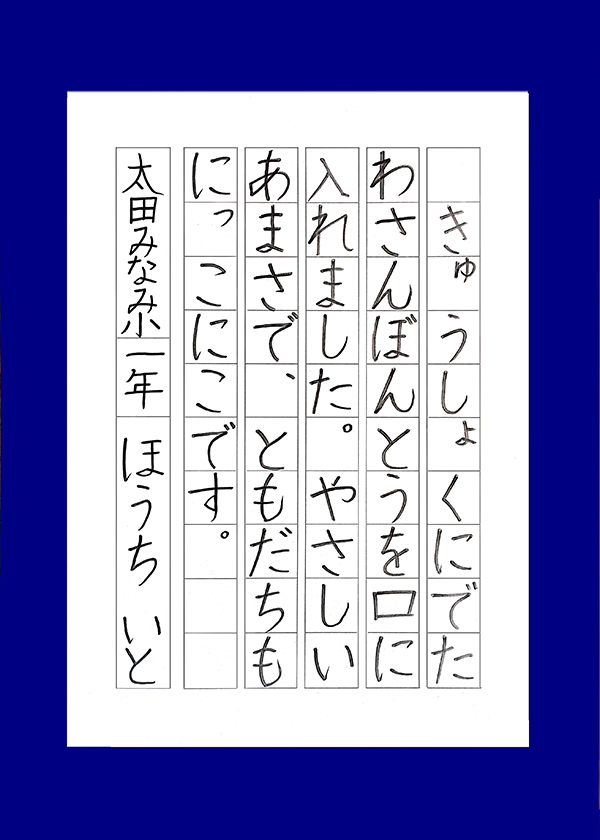 きゅうしょくにでた
わさんぼんとうを口に
入れました。やさしい
あまさで、ともだちも
にっこにこです。
太田みなみ小一年 ほうち いと